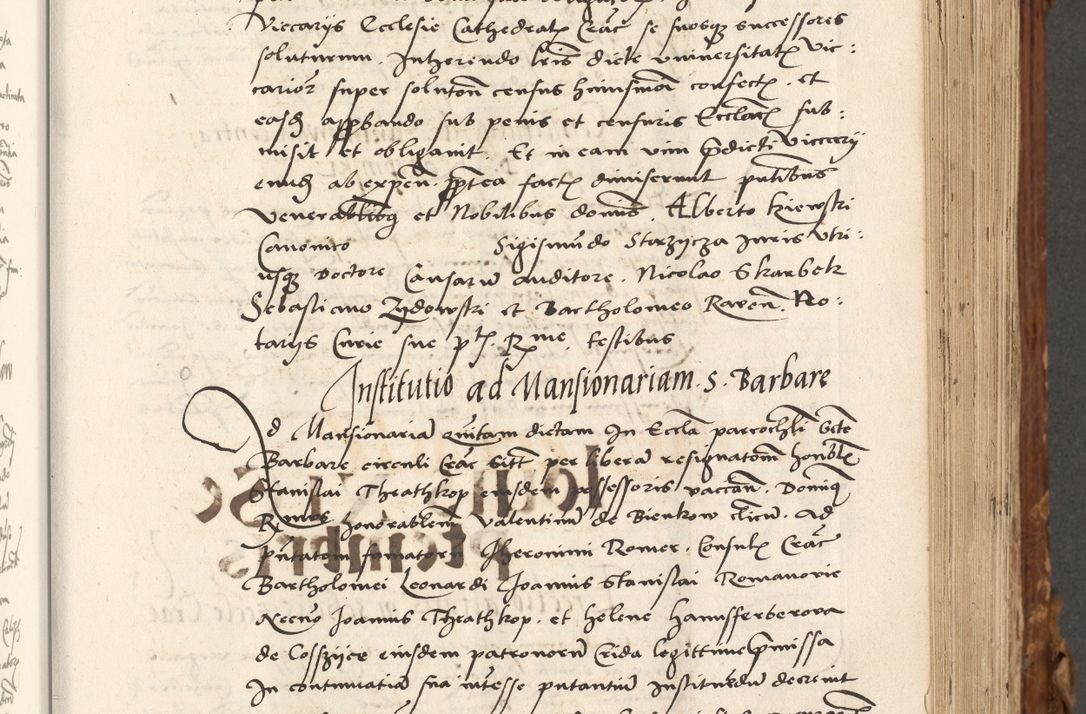 Viccarijs Ecclesie Cathedralis Crac̄ se suosq̃ successores
soluturum. Inherendo lr̄is dicte vniversitatis Vic:
carior̃ super soluton̄ census huiusmōi confectis. et
easdē app̄bando sub penis et censuris Eccl̄ticis sub:
misit et obligauit. Et in eam vim p̄dicti Viccarij
eundē ab expen̄. pp̄terea factis dimiserunt putibus
Venerabilibq̃ et Nobilibus domīs. Alberto Kiewski
Canonico Sigismūdo Starzijcza Juris Vtri:
usq̃ Doctore Causarū auditore. Nicolao Skarbek
Sebastiano Zydowski et Bartholomeo Raven̄. No:
tarijs Curie sue p̄t. R.me. testibus
Institutio ad Mansionariam. S. Barbare
Ad Mansionariā quītam dictam In Eccl̄a parrochl̄i Sc̄te
Barbare circuli Crac̄ sitī per liberā resignatōm honbl̄is
Stanislai Thrathkop eiusdem possessoris vaccan̄. Domīq̃
R.mus honorablem̄ Valentinū de Bienkow cl̄icū. Ad
pn̄tatom̄ famator̄ Jheronimi Romer. Consulis Crac̄
Bartholomei Leonardi Joannis Stanislai Romanovic
Necnō Joannis Thrathkop. et Helene Hannsferberova
de Cosszijce eiusdem patronorū Crida legittime p̄missa
In continuatiā sua interesse putantiū Instituēdū decreuit